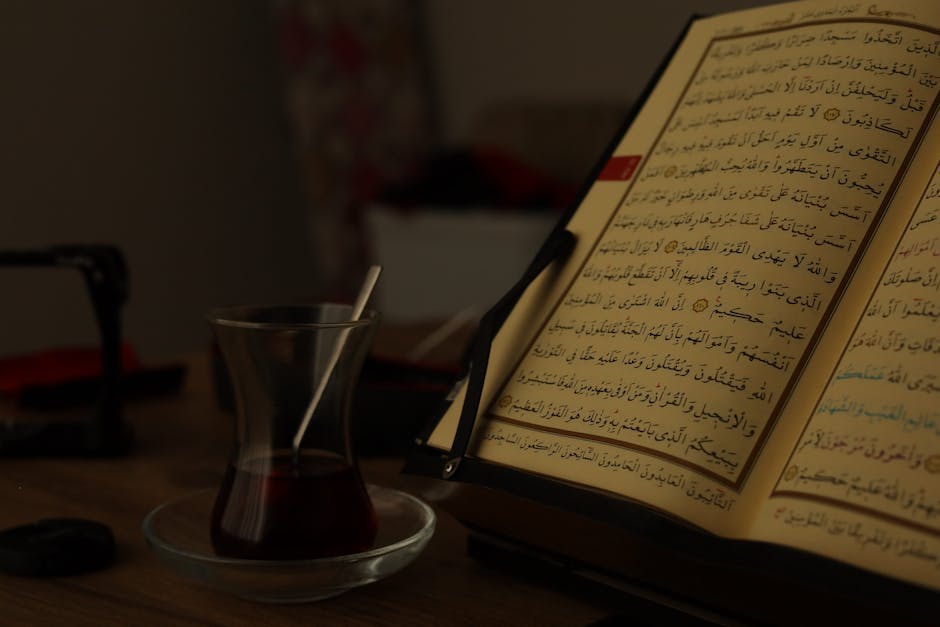 عَسَى
اَمْوَالِهِمْ
اِنَّ صَلٰوتَكَ
يَعْلَمُٓوا اَنَّ اللّٰهَ
وَاَنَّ اللّٰهَ
اللّٰهُ عَمَلَكُمْ
عَالِمِ الْغَيْبِ وَالشَّهَادَةِ
وَاٰخَرُونَ مُرْجَوْنَ
وَاللّٰهُ عَلِيمٌ حَكِيمٌ
وَتَفْرِيقًا بَيْنَ الْمُؤْمِنِينَ
الَّذِينَ اتَّخَذُوا مَسْجِدًا ضِرَارًا وَكُفْرًا وَتَفْرِيقًا
بَيْنَ الْمُؤْمِنِينَ وَاِرْصَادًا لِمَنْ حَارَبَ اللّٰهَ وَرَسُولَهُ مِنْ
قَبْلُ وَلَيَحْلِفُنَّ اِنْ اَرَدْنَٓا اِلَّا الْحُسْنٰى وَاللّٰهُ يَشْهَدُ اِنَّهُمْ
لَكَاذِبُونَ لَا تَقُمْ فِيهِ اَبَدًا لَمَسْجِدٌ اُسِّسَ عَلَى
التَّقْوٰى مِنْ اَوَّلِ يَوْمٍ اَحَقُّ اَنْ تَقُومَ فِيهِ فِيهِ رِجَالٌ
يُحِبُّونَ اَنْ يَتَطَهَّرُوا وَاللّٰهُ يُحِبُّ الْمُطَّهِّرِينَ اَفَمَنْ
اَسَّسَ بُنْيَانَهُ عَلٰى تَقْوٰى مِنَ اللّٰهِ وَرِضْوَانٍ خَيْرٌ اَمْ مَنْ
اَسَّسَ بُنْيَانَهُ عَلٰى شَفَا جُرُفٍ هَارٍ فَانْهَارَ بِهِ فِي نَارِ جَهَنَّمَ
وَاللّٰهُ لَا يَهْدِي الْقَوْمَ الظَّالِمِينَ لَا يَزَالُ بُنْيَانُهُمُ
الَّذِي بَنَوْا رِيبَةً فِي قُلُوبِهِمْ اِلَّٓا اَنْ تَقَطَّعَ قُلُوبُهُمْ وَاللّٰهُ
عَلِيمٌ حَكِيمٌ اِنَّ اللّٰهَ اشْتَرٰى مِنَ الْمُؤْمِنِينَ
اَنْفُسَهُمْ وَاَمْوَالَهُمْ بِاَنَّ لَهُمُ الْجَنَّةَ يُقَاتِلُونَ فِي سَبِيلِ
اللّٰهِ فَيَقْتُلُونَ وَيُقْتَلُونَ وَعْدًا عَلَيْهِ حَقًّا فِي التَّوْرٰيةِ
وَالْاِنْجِيلِ وَالْقُرْاٰنِ وَمَنْ اَوْفٰى بِعَهْدِهِ مِنَ اللّٰهِ فَاسْتَبْشِرُوا
بِبَيْعِكُمُ الَّذِي بَايَعْتُمْ بِهِ وَذٰلِكَ هُوَ الْفَوْزُ الْعَظِيمُ
اَلتَّٓائِبُونَ الْعَابِدُونَ الْحَامِدُونَ السَّٓائِحُونَ الرَّاكِعُونَ السَّاجِدُونَ